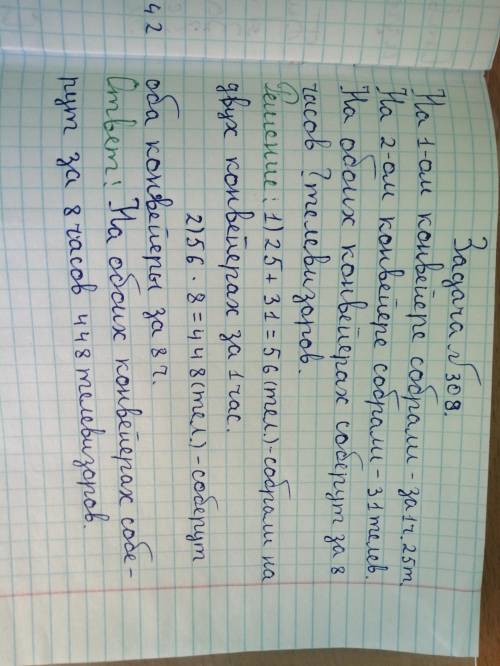 42
Задача №309.
На 1-ом конвейере собрали - за 1ч. 25т.
На 2-ом конвейере собрали - 31 телев.
На обоих конвейерах соберут за 8
часов ? телевизоров.
Решение: 1) 25 + 31 = 56 (тел.) - собрали на
двух конвейерах за 1 час.
2) 56 · 8 = 448 (тел.) - соберут
оба конвейеры за 8 ч.
Ответ: На обоих конвейерах собе-
рут за 8 часов 448 телевизоров.